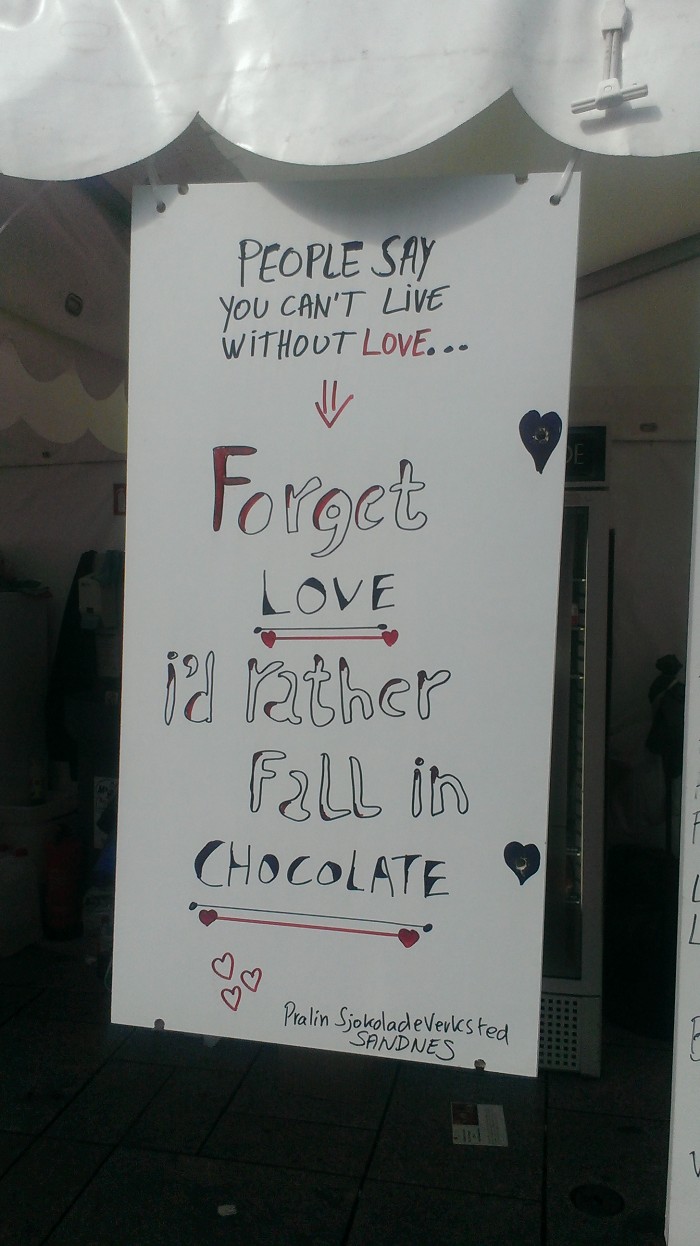 PEOPLE SAY
YOU CAN'T LIVE
WITHOUT LOVE...
Forget
LOVE
i'd rather
Fall in
CHOCOLATE
Pralin SjokoladeVerksted
SANDNES